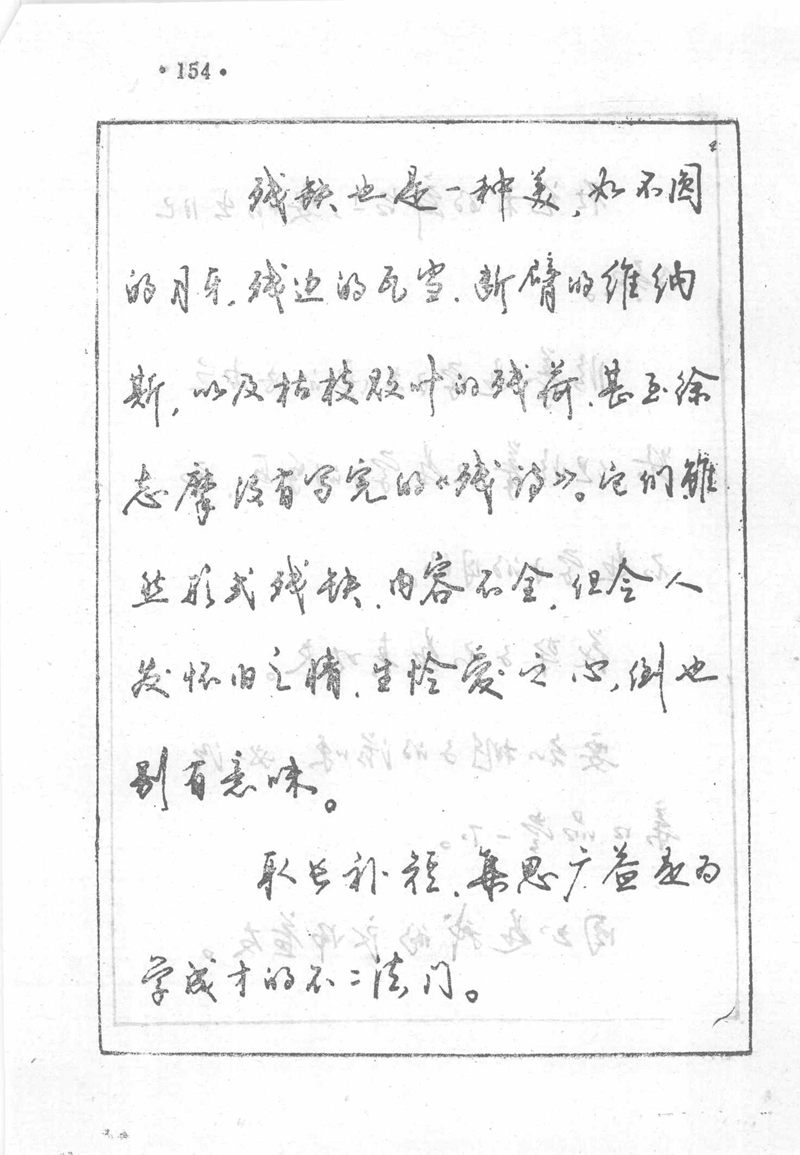 ·154·
残缺也是一种美,如不圆
的月牙,残边的瓦当,断臂的维纳
斯,以及枯枝败叶的残荷,甚至徐
志摩没有写完的《残诗》。它们虽
然形式残缺,内容不全,但令人
发怀旧之情,生怜爱之心,倒也
别有意味。
取长补短,集思广益是为
学成才的不二法门。